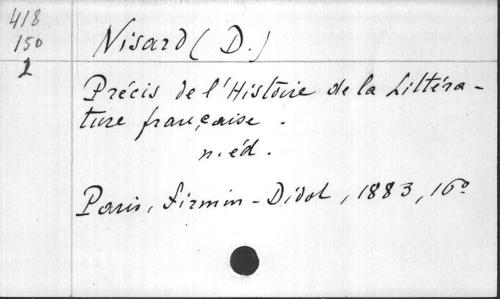 418
150
1
Nisard (D.)
Précis de l'Histoire de la Littéra-
ture française.
n. éd.
Paris, Firmin-Didot, 1883, 16º